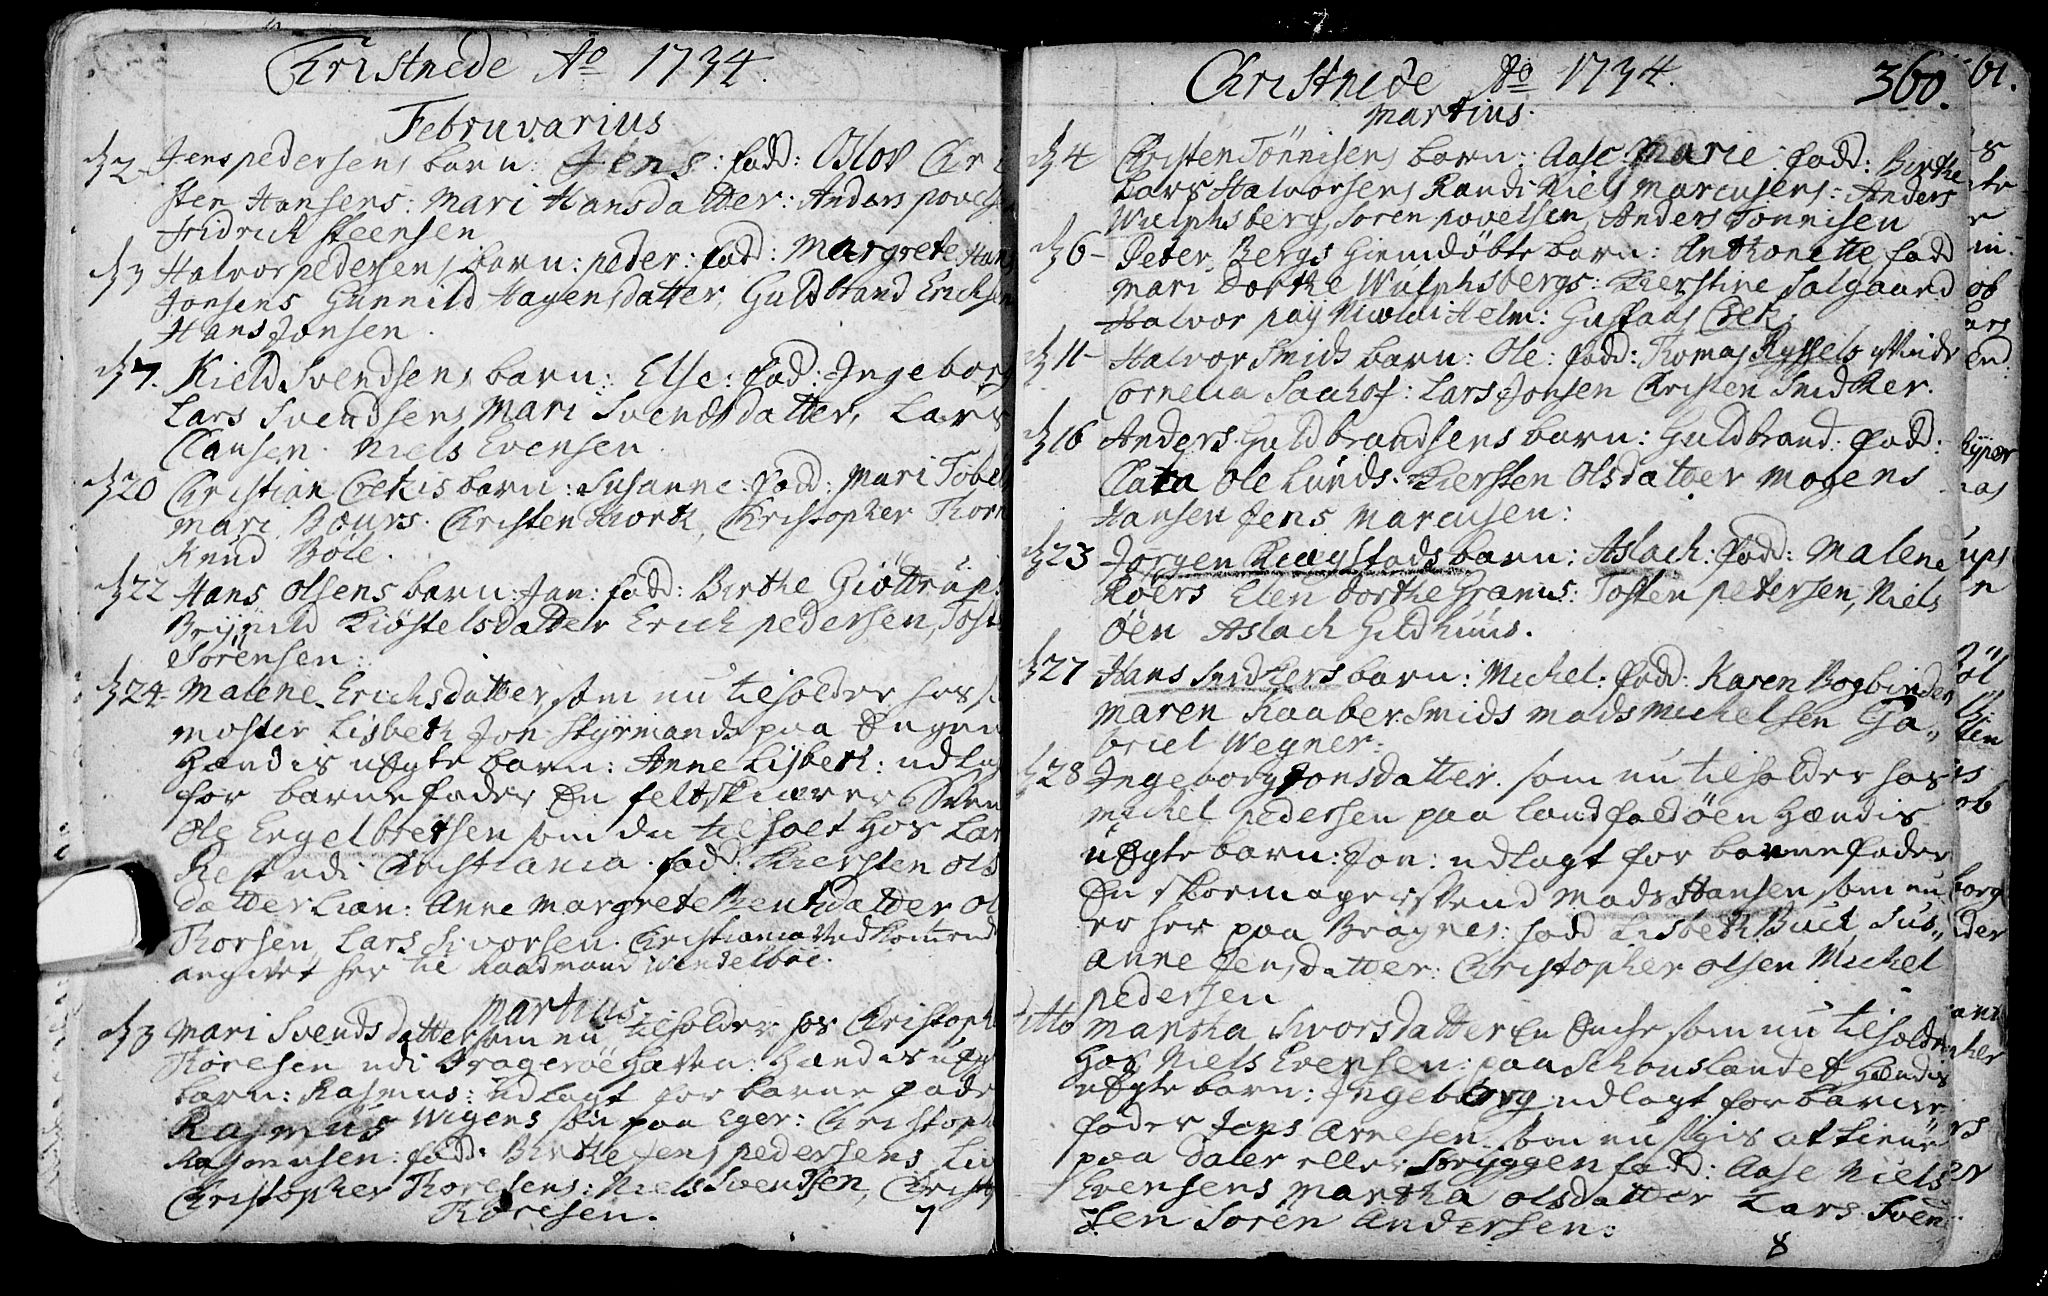 Christnede Ao 1734.
Februvarius
d. 2 Jens pedersens barn: Jens: fadd: Oslov Chri
sten Hansens: Mari Hansdatter: Anders povels
Fridrich Steensen
d. 3 Halvor pedersens barn: peder: fadd: Margrete Hans
Jonsens Gunnild Hagensdatter, Guldbrand Erichsen
Hans Jonsen.
d. 7. Kield Svendsens barn: Else: fad: Ingeborg
Lars Svendsens, Mari Svendsdatter, Lars
Clausen. Niels Evensen.
d. 20 Christian barn: Susanne: fadd: Mari
Mari Christen Christopher
Knud Böle.
d. 22 Hans Olsens barn: Jan: fadd: Birthe Giöttrups
Brÿnild Kiöstelsdatter Erich pedersen, Tost
Sörensen:
d. 24. Malene Erichsdatter, som nu tilholder hos
moster Lisbeth Jon Stÿrmands paa Engene
Hændis uægte barn: Anne Lisbeth: udlagt
for barnefader En feltskiærer Sven
Ole Engelbretsen som da tilholt hos Lars
udi Christiania. fadd: Kiersten Ols
datter Lian: Anne Margrete Bentsdatter Ol
Thorsen, Lars Sivorsen. Christiania vedkommende
angivet her til Raadmand Wendelboe.
Martius.
d. 3 Mari Svendsdatter som nu tilholder hos Christopher
Thoresen udi Dragerøe Havn: Hændis uægte
barn: Rasmus: udlagt for barne fader
Rasmus Wigens søn paa Eger: Christopher
Rasmusen: fadd: Birthe Jens pedersens Liv
Christopher Thoresens: Niels Svendsen, Christ
Thoresen.
7
Christnede Ao 1734.
360.
61.
Martius.
d. 4 Christen Tönnisens barn: Aase Marie: fadd: Birthe
Lars Halvorsens Randi Niels Marcusens: Anders
Wulphsberg, Sören povelsen, Anders Tönnisen
d. 6 - Peter Bergs Hiemdöbte barn: Anthonette fadd
Mari Dorthe Wulphsbergs: Kierstine Salgaard
Halvor paÿ Nicolai Helm: Gustavs
d. 11 - Halvor Smids barn: Ole: fadd: Thomas qvinde
Cornelia Saahof: Lars Jonsen Christen Snidker.
d. 16 Anders Guldbrandsens barn: Guldbrand: fadd:
Clara Ole Lunds. Kiersten Olsdatter Mogens
Hansen Jens Marcusen:
d. 23 Jorgen barn: Aslach: fadd: Malene
Roers Elen Dorthe Granus: Tosten petersen, Niels
Öen Aslach Gildhuus.
d. 27 Hans Snidkers barn: Michel: fadd: Karen Bogbinder
Maren Raaber Smids Mads Michelsen Ga„
briel Wegner.
d. 28 Ingeborg Jonsdatter. som nu tilholder hos
Michel pedersen paa Landfaldöen Hændis
uægte barn: Jon: udlagt for barnefader
En skomagersvend Mads Hansen som nu
er her paa Bragnes: fadd Lisbeth Buck Sus„
anne Jensdatter: Christopher Olsen Michel
pedersen
ditto Martha Sivorsdatter En Enche som nu tilholder
Hos Niels Evensen: paa Schouslandet Hændis
uægte barn: Ingeborg udlagt for barne
fader Jens Arnesen som nu sigis at tiene
paa Daler eller Strÿggen fadd: Aase Niels
Evensens Martha Olsdatter Lars Svend
sen Sören Andersen:
8